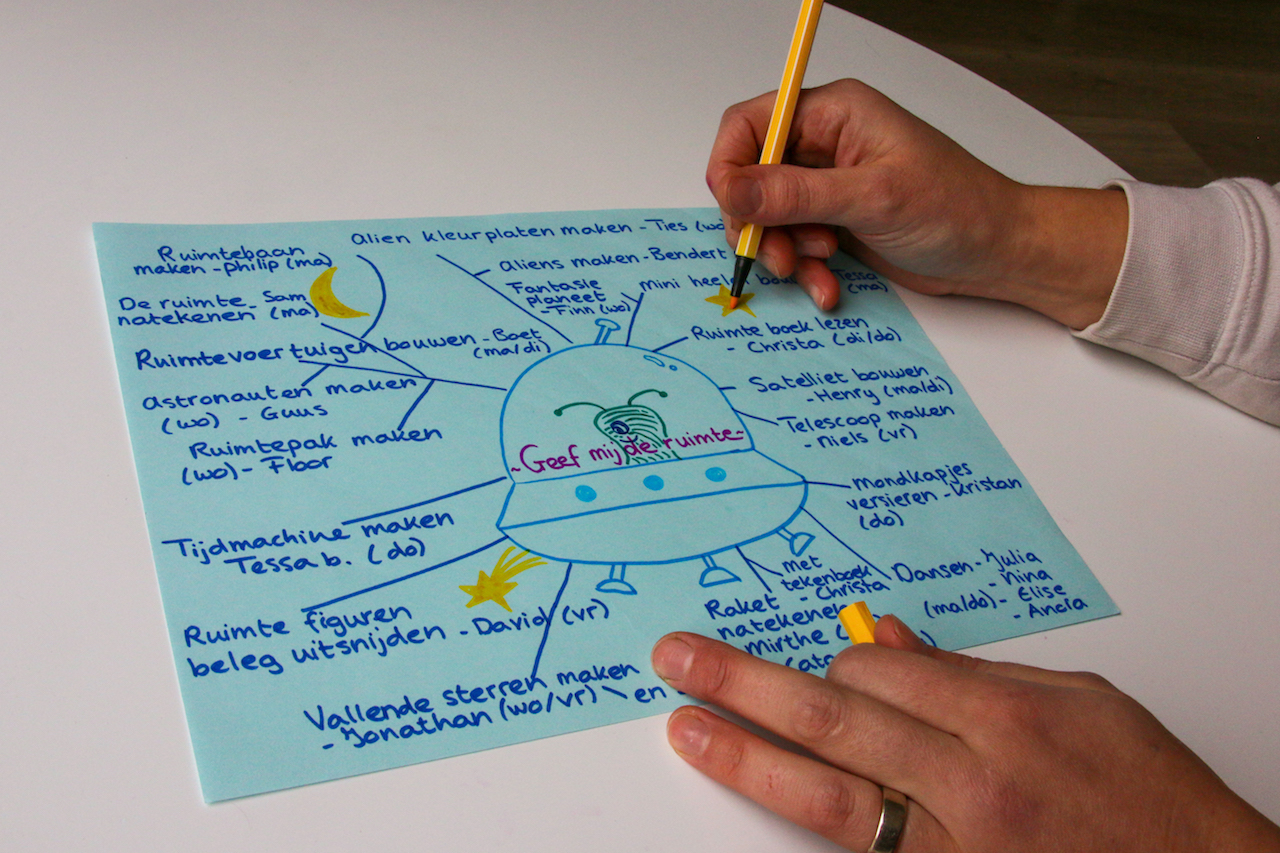 alien kleurplaten maken - Ties (wo
Ruimtebaan
maken - Philip (ma)
aliens maken - Bendert
Fantasie
planeet
- Finn (wo)
mini heelal Tessa
(ma)
De ruimte - Sam
natekenen (ma)
Ruimte boek lezen
- Christa (di/do)
Ruimtevoertuigen bouwen - Boet
(ma/di)
Satelliet bouwen
- Henry (ma/di)
astronauten maken
(wo) - Guus
Telescoop maken
- niels (vr)
Ruimtepak maken
(wo) - Floor
~Geef mij de ruimte~
mondkapjes
versieren - Kristan
(do)
Tijdmachine maken
Tessa b. (do)
met
tekenboek
- Christa
Dansen - Julia
- nina
(ma/do) - Elise
- Ancia
Ruimte figuren
beleg uitsnijden - David (vr)
Raket
natekenen
mirthe
Vallende sterren maken
- Jonathan (wo/vr) \ en